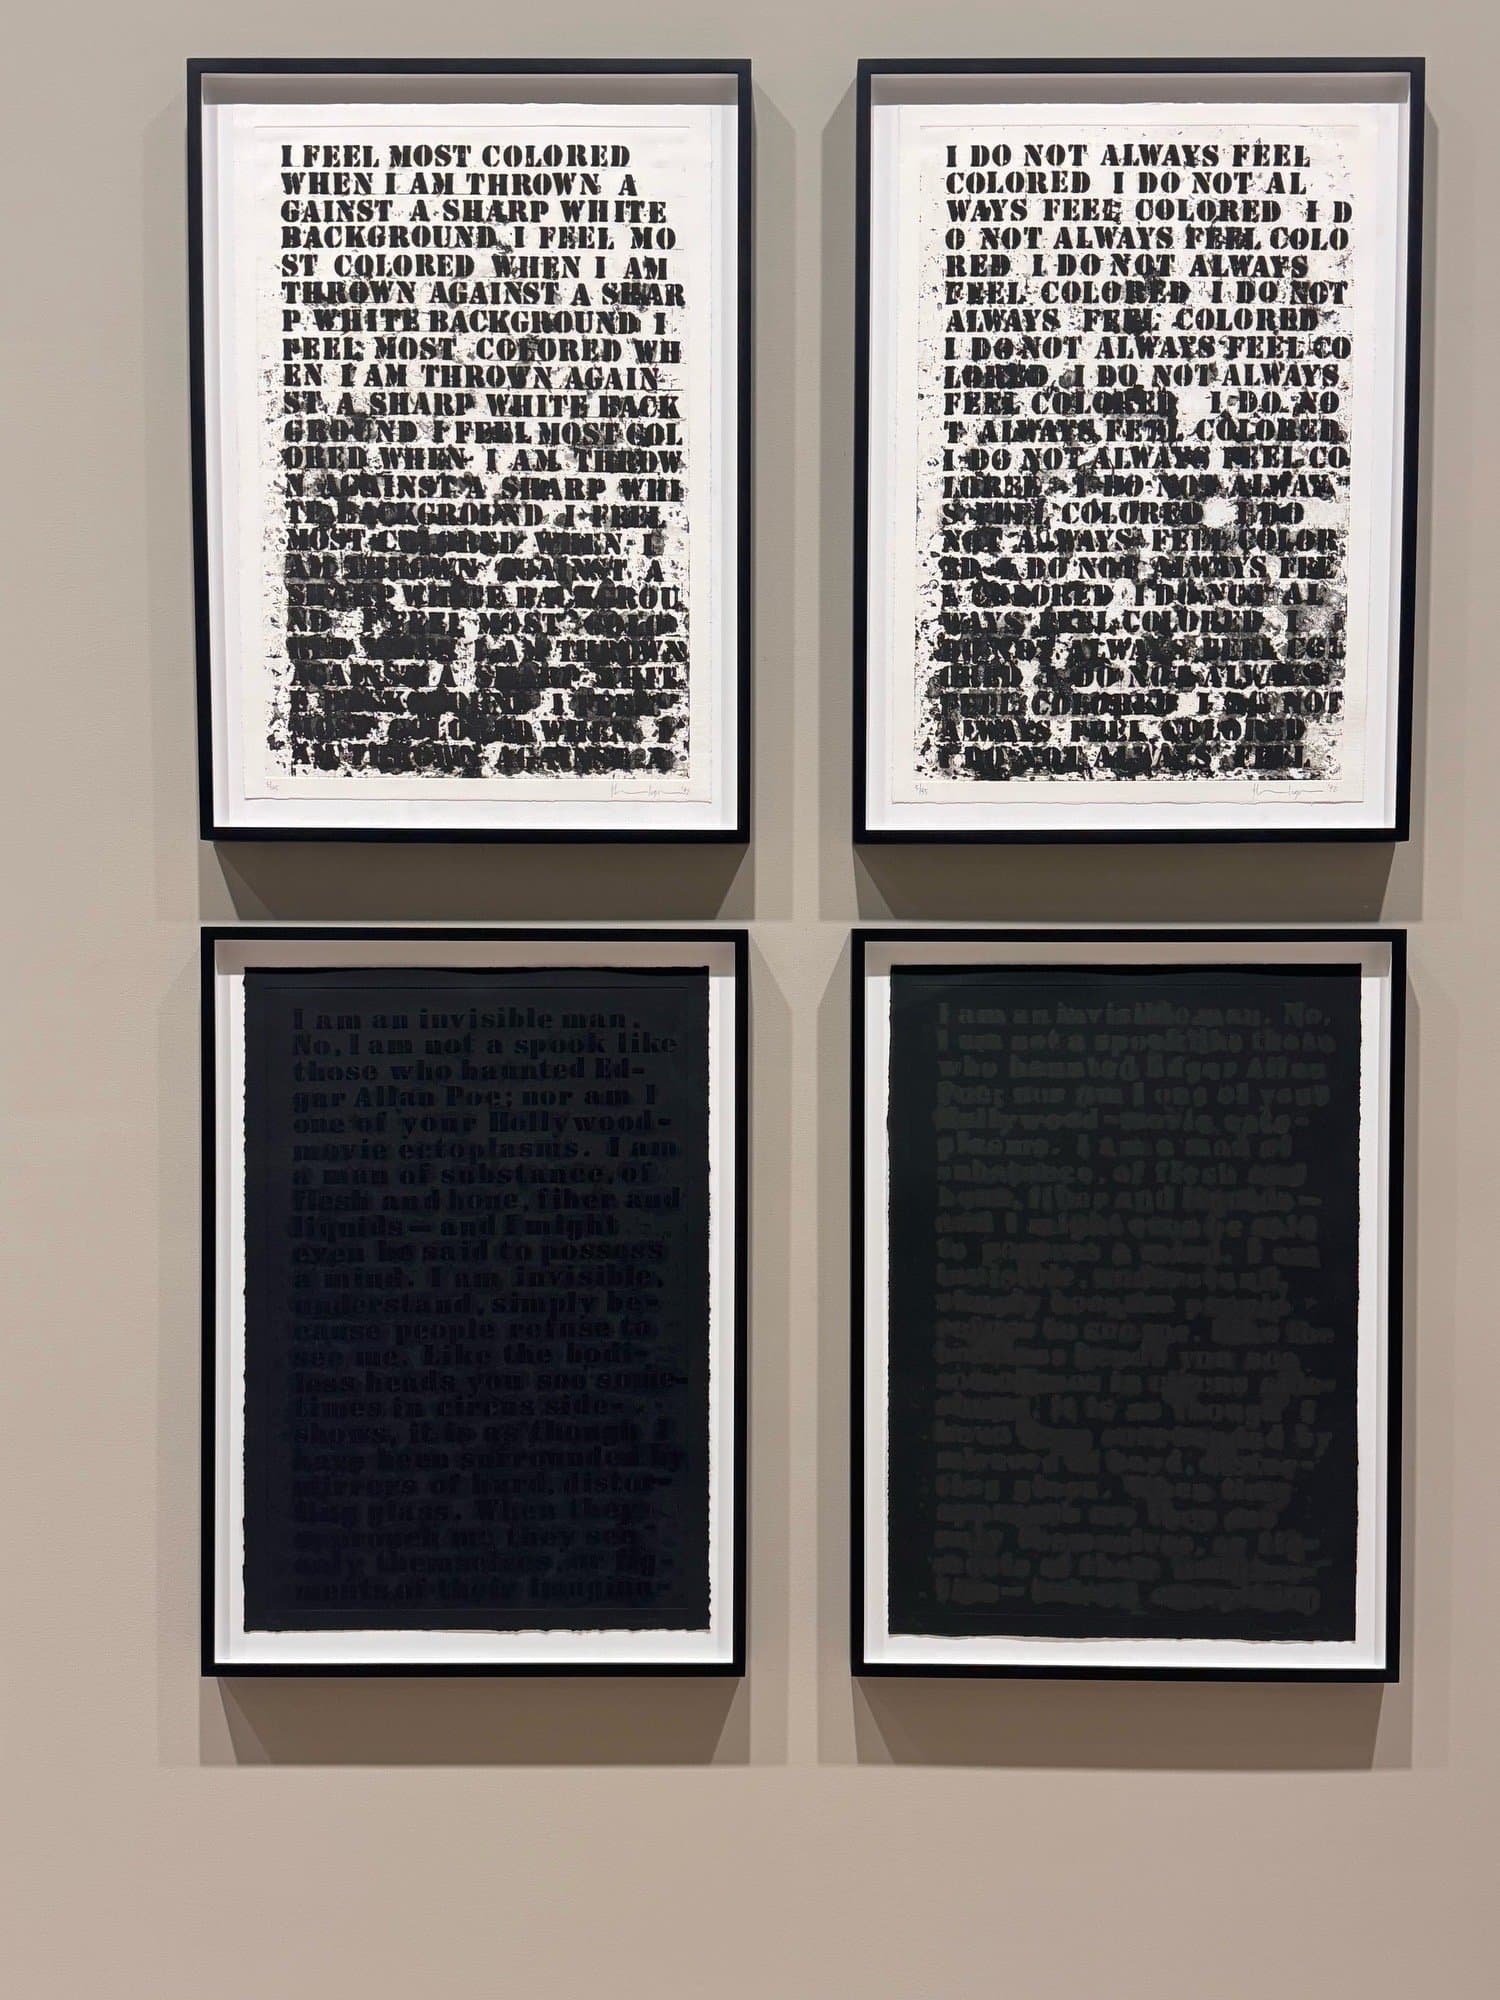 I FEEL MOST COLORED
WHEN I AM THROWN A
GAINST A SHARP WHITE
BACKGROUND I FEEL MO
ST COLORED WHEN I AM
THROWN AGAINST A SHAR
P WHITE BACKGROUND I
FEEL MOST COLORED WH
EN I AM THROWN AGAIN
ST A SHARP WHITE BACK
GROUND I FEEL MOST COL
ORED WHEN I AM THROW
N AGAINST A SHARP WHI
TE BACKGROUND I FEEL
MOST COLORED WHEN I
AM THROWN AGAINST A
SHARP WHITE BACKGROU
ND I FEEL MOST COLO
I AM THROWN
AGAINST A SHARP WHIT
I FEEL
WHEN I
AM THROWN AGAINST A
I DO NOT ALWAYS FEEL
COLORED I DO NOT AL
WAYS FEEL COLORED I D
O NOT ALWAYS FEEL COLO
RED I DO NOT ALWAYS
FEEL COLORED I DO NOT
ALWAYS FEEL COLORED
I DO NOT ALWAYS FEEL CO
LORED I DO NOT ALWAYS
FEEL COLORED I DO NO
T ALWAYS FEEL COLORED
I DO NOT ALWAYS FEEL CO
LORED I DO NOT ALWAY
S FEEL COLORED I DO
NOT ALWAYS FEEL COLOR
ED I DO NOT ALWAYS FEE
L COLORED I DO NOT AL
WAYS FEEL COLORED I
DO NOT ALWAYS FEEL COL
ORED I DO NOT ALWAYS
FEEL COLORED I DO NOT
ALWAYS FEEL COLORED
I DO NOT ALWAYS FEEL
I am an invisible man.
No, I am not a spook like
those who haunted Ed-
gar Allan Poe; nor am I
one of your Hollywood-
movie ectoplasms. I am
a man of substance, of
flesh and bone, fiber and
liquids—and I might
even be said to possess
a mind. I am invisible,
understand, simply be-
cause people refuse to
see me. Like the bodi-
less heads you see some-
times in circus side-
shows, it is as though I
have been surrounded by
mirrors of hard, distor-
ting glass. When they
approach me they see
only themselves, or fig-
ments of their imagin-
I am an invisible man. No,
I am not a spook like those
who haunted Edgar Allan
Poe; nor am I one of your
Hollywood-movie ecto-
plasms. I am a man of
substance, of flesh and
bone, fiber and liquids—
and I might even be said
to possess a mind. I am
invisible, understand,
simply because people
refuse to see me. Like the
you see
surrounded by